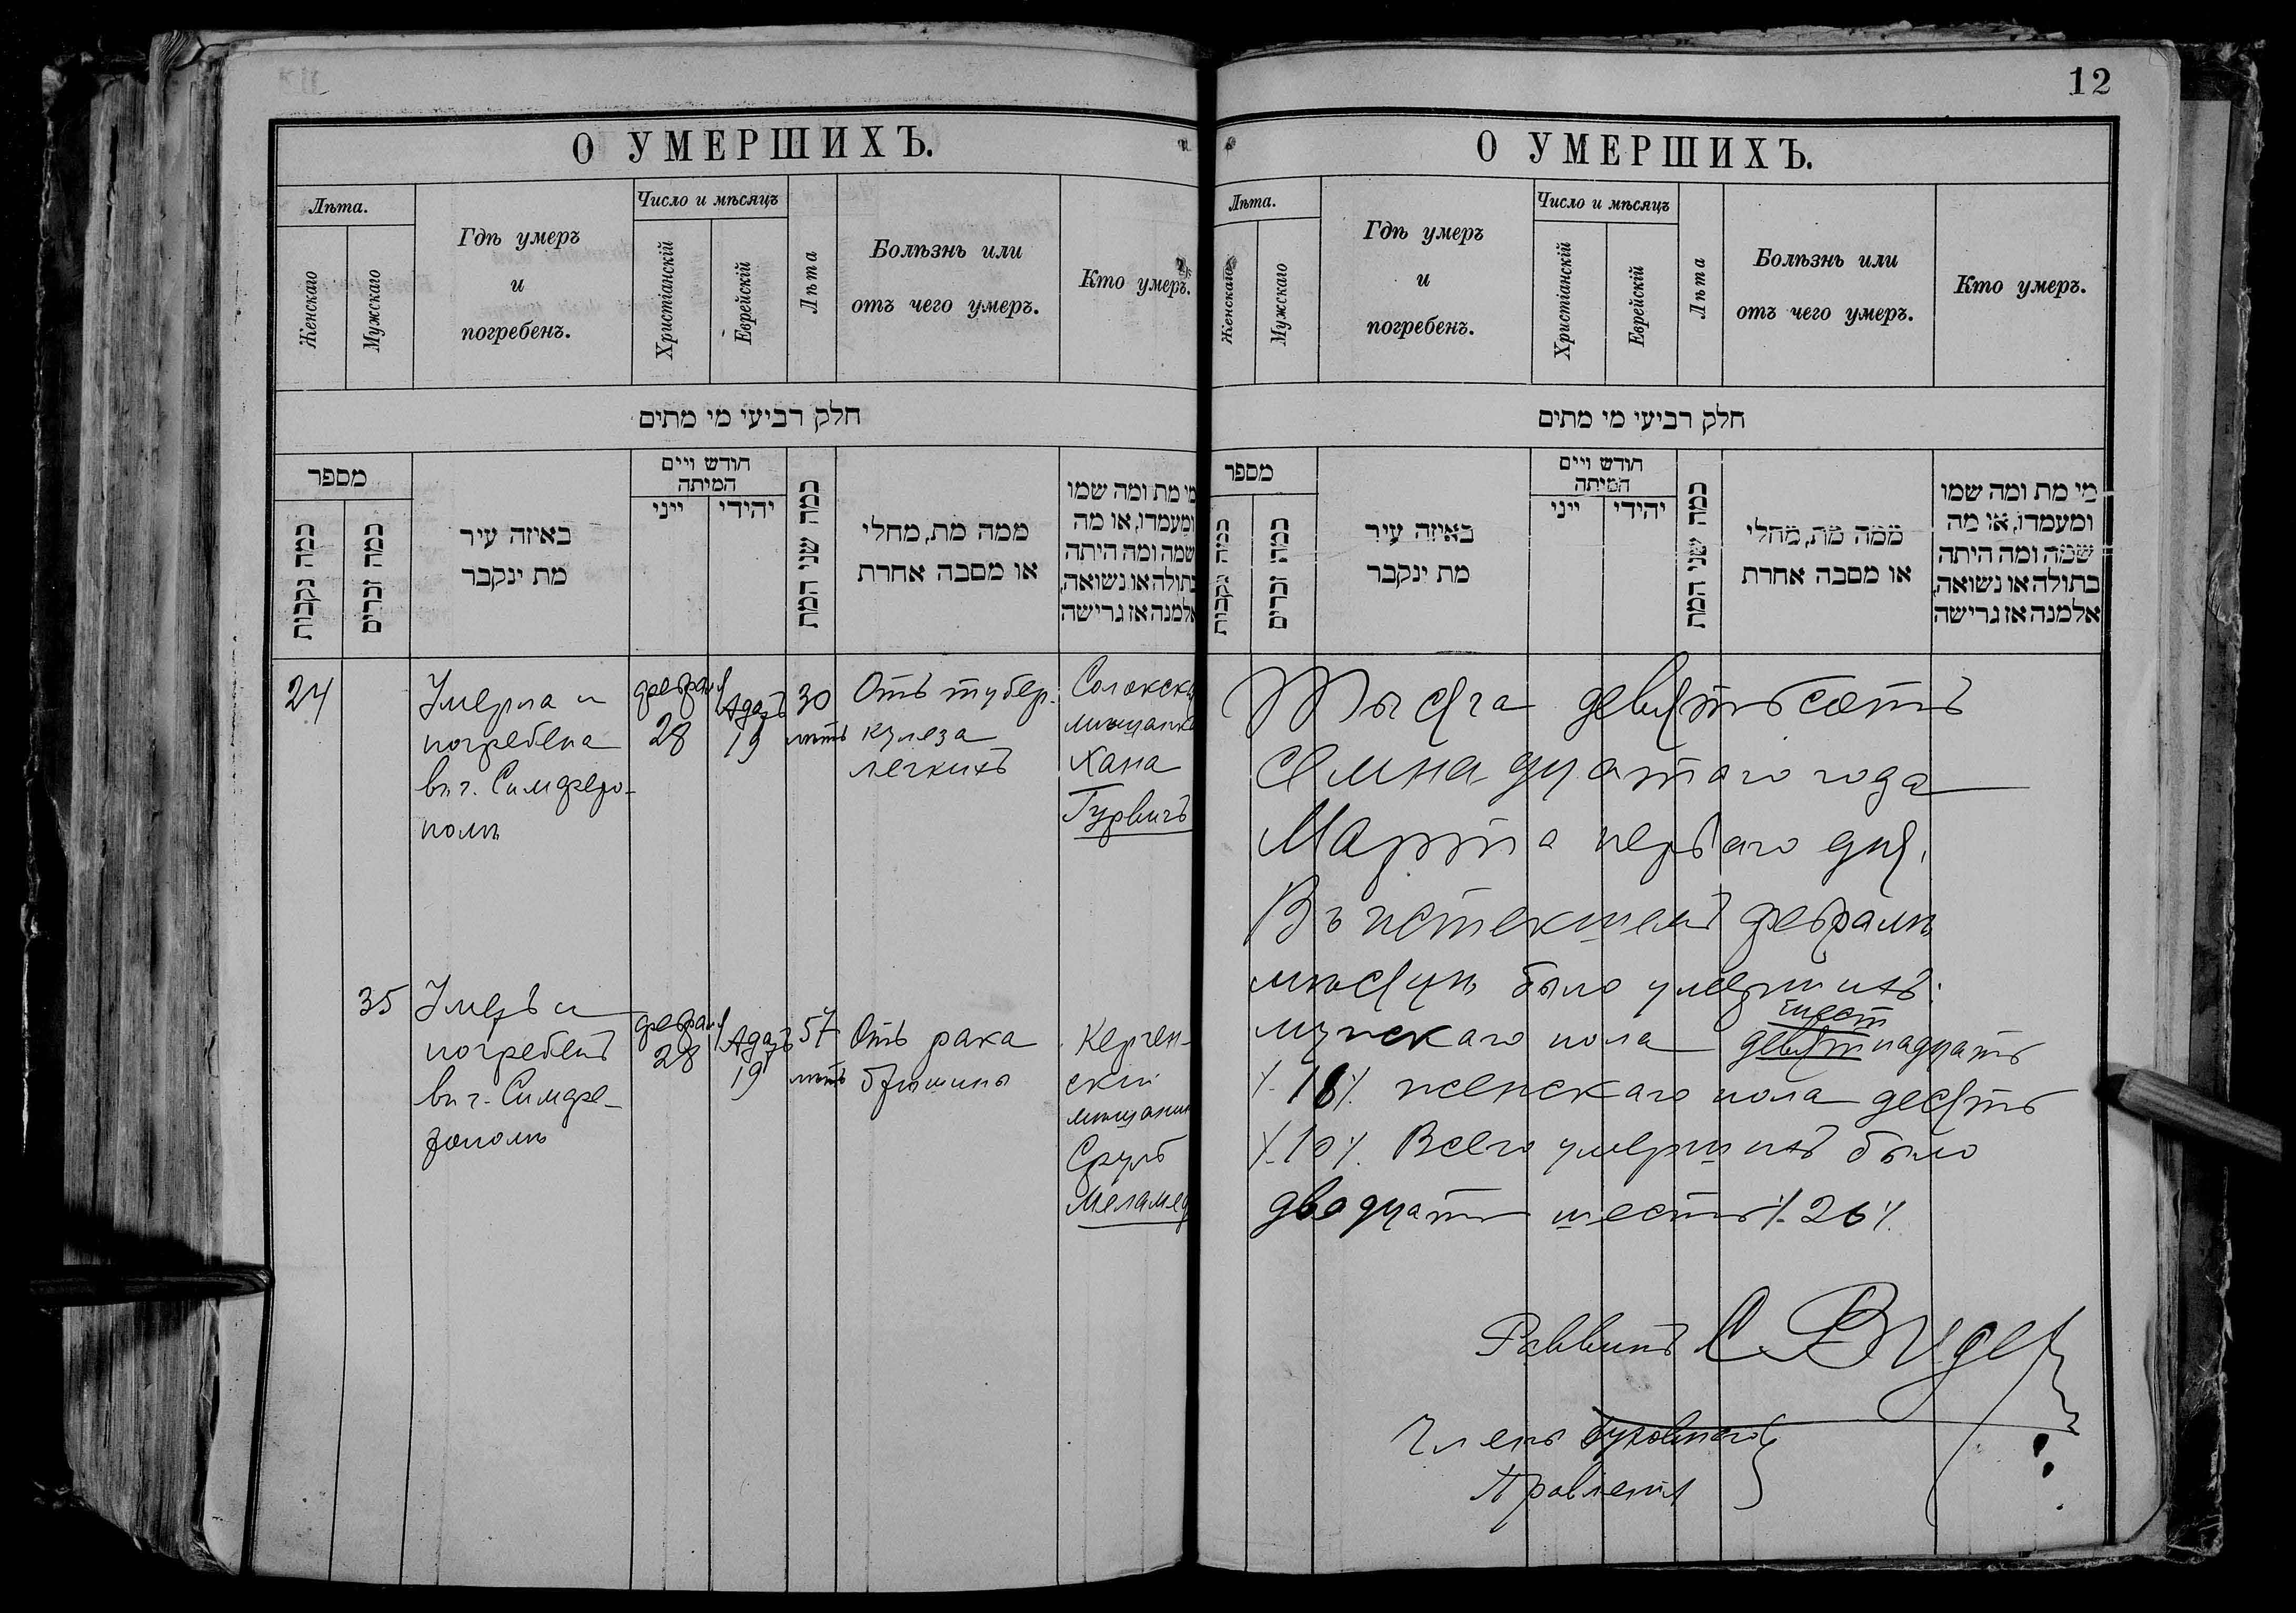 О УМЕРШИХЪ.
Лѣта.
Женскаго
Мужскаго
Гдѣ умеръ
и
погребенъ.
Число и мѣсяцъ
Христіанскій
Еврейскій
Лѣта
Болѣзнь или
отъ чего умеръ.
Кто умеръ.
חלק רביעי מי מתים
מספר
כמה נקבות
כמה זכרים
באיזה עיר
מת ינקבר
חודש ויים
המיתה
ייני
יהידי
כמה שני המת
ממה מת, מחלי
או מסבה אחרת
מי מת ומה שמו
ומעמדו, או מה
שמה ומה היתה
בתולה או נשואה,
אלמנה אז גרישה
24
Умерла и
погребена
въ г. Симферо-
полѣ
февраля
28
Адаръ
19
30
лѣтъ
Отъ тубер-
кулеза
легкихъ
мѣщанка
Хана
Гурвичъ
35
Умеръ и
погребенъ
въ г. Симфе-
рополѣ
февраля
28
Адаръ
19
57
лѣтъ
Отъ рака
брюшины
Керчен-
скій
мѣщанин
Сруль
Меламед
12
О УМЕРШИХЪ.
Лѣта.
Женскаго
Мужскаго
Гдѣ умеръ
и
погребенъ.
Число и мѣсяцъ
Христіанскій
Еврейскій
Лѣта
Болѣзнь или
отъ чего умеръ.
Кто умеръ.
חלק רביעי מי מתים
מספר
כמה נקבות
כמה זכרים
באיזה עיר
מת ינקבר
חודש ויים
המיתה
ייני
יהידי
כמה שני המת
ממה מת, מחלי
או מסבה אחרת
מי מת ומה שמו
ומעמדו, או מה
שמה ומה היתה
בתולה או נשואה,
אלמנה אז גרישה
Тысяча девятьсотъ
семнадцатаго года
Марта перваго дня.
Въ истекшемъ февралѣ
мѣсяцѣ было умершихъ:
шест
мужскаго пола девятнадцать
/.16/. женскаго пола десять
/.10/. Всего умершихъ было
двадцать шесть /.26/.
Раввинъ С.
Членъ Духовнаго
Правленія